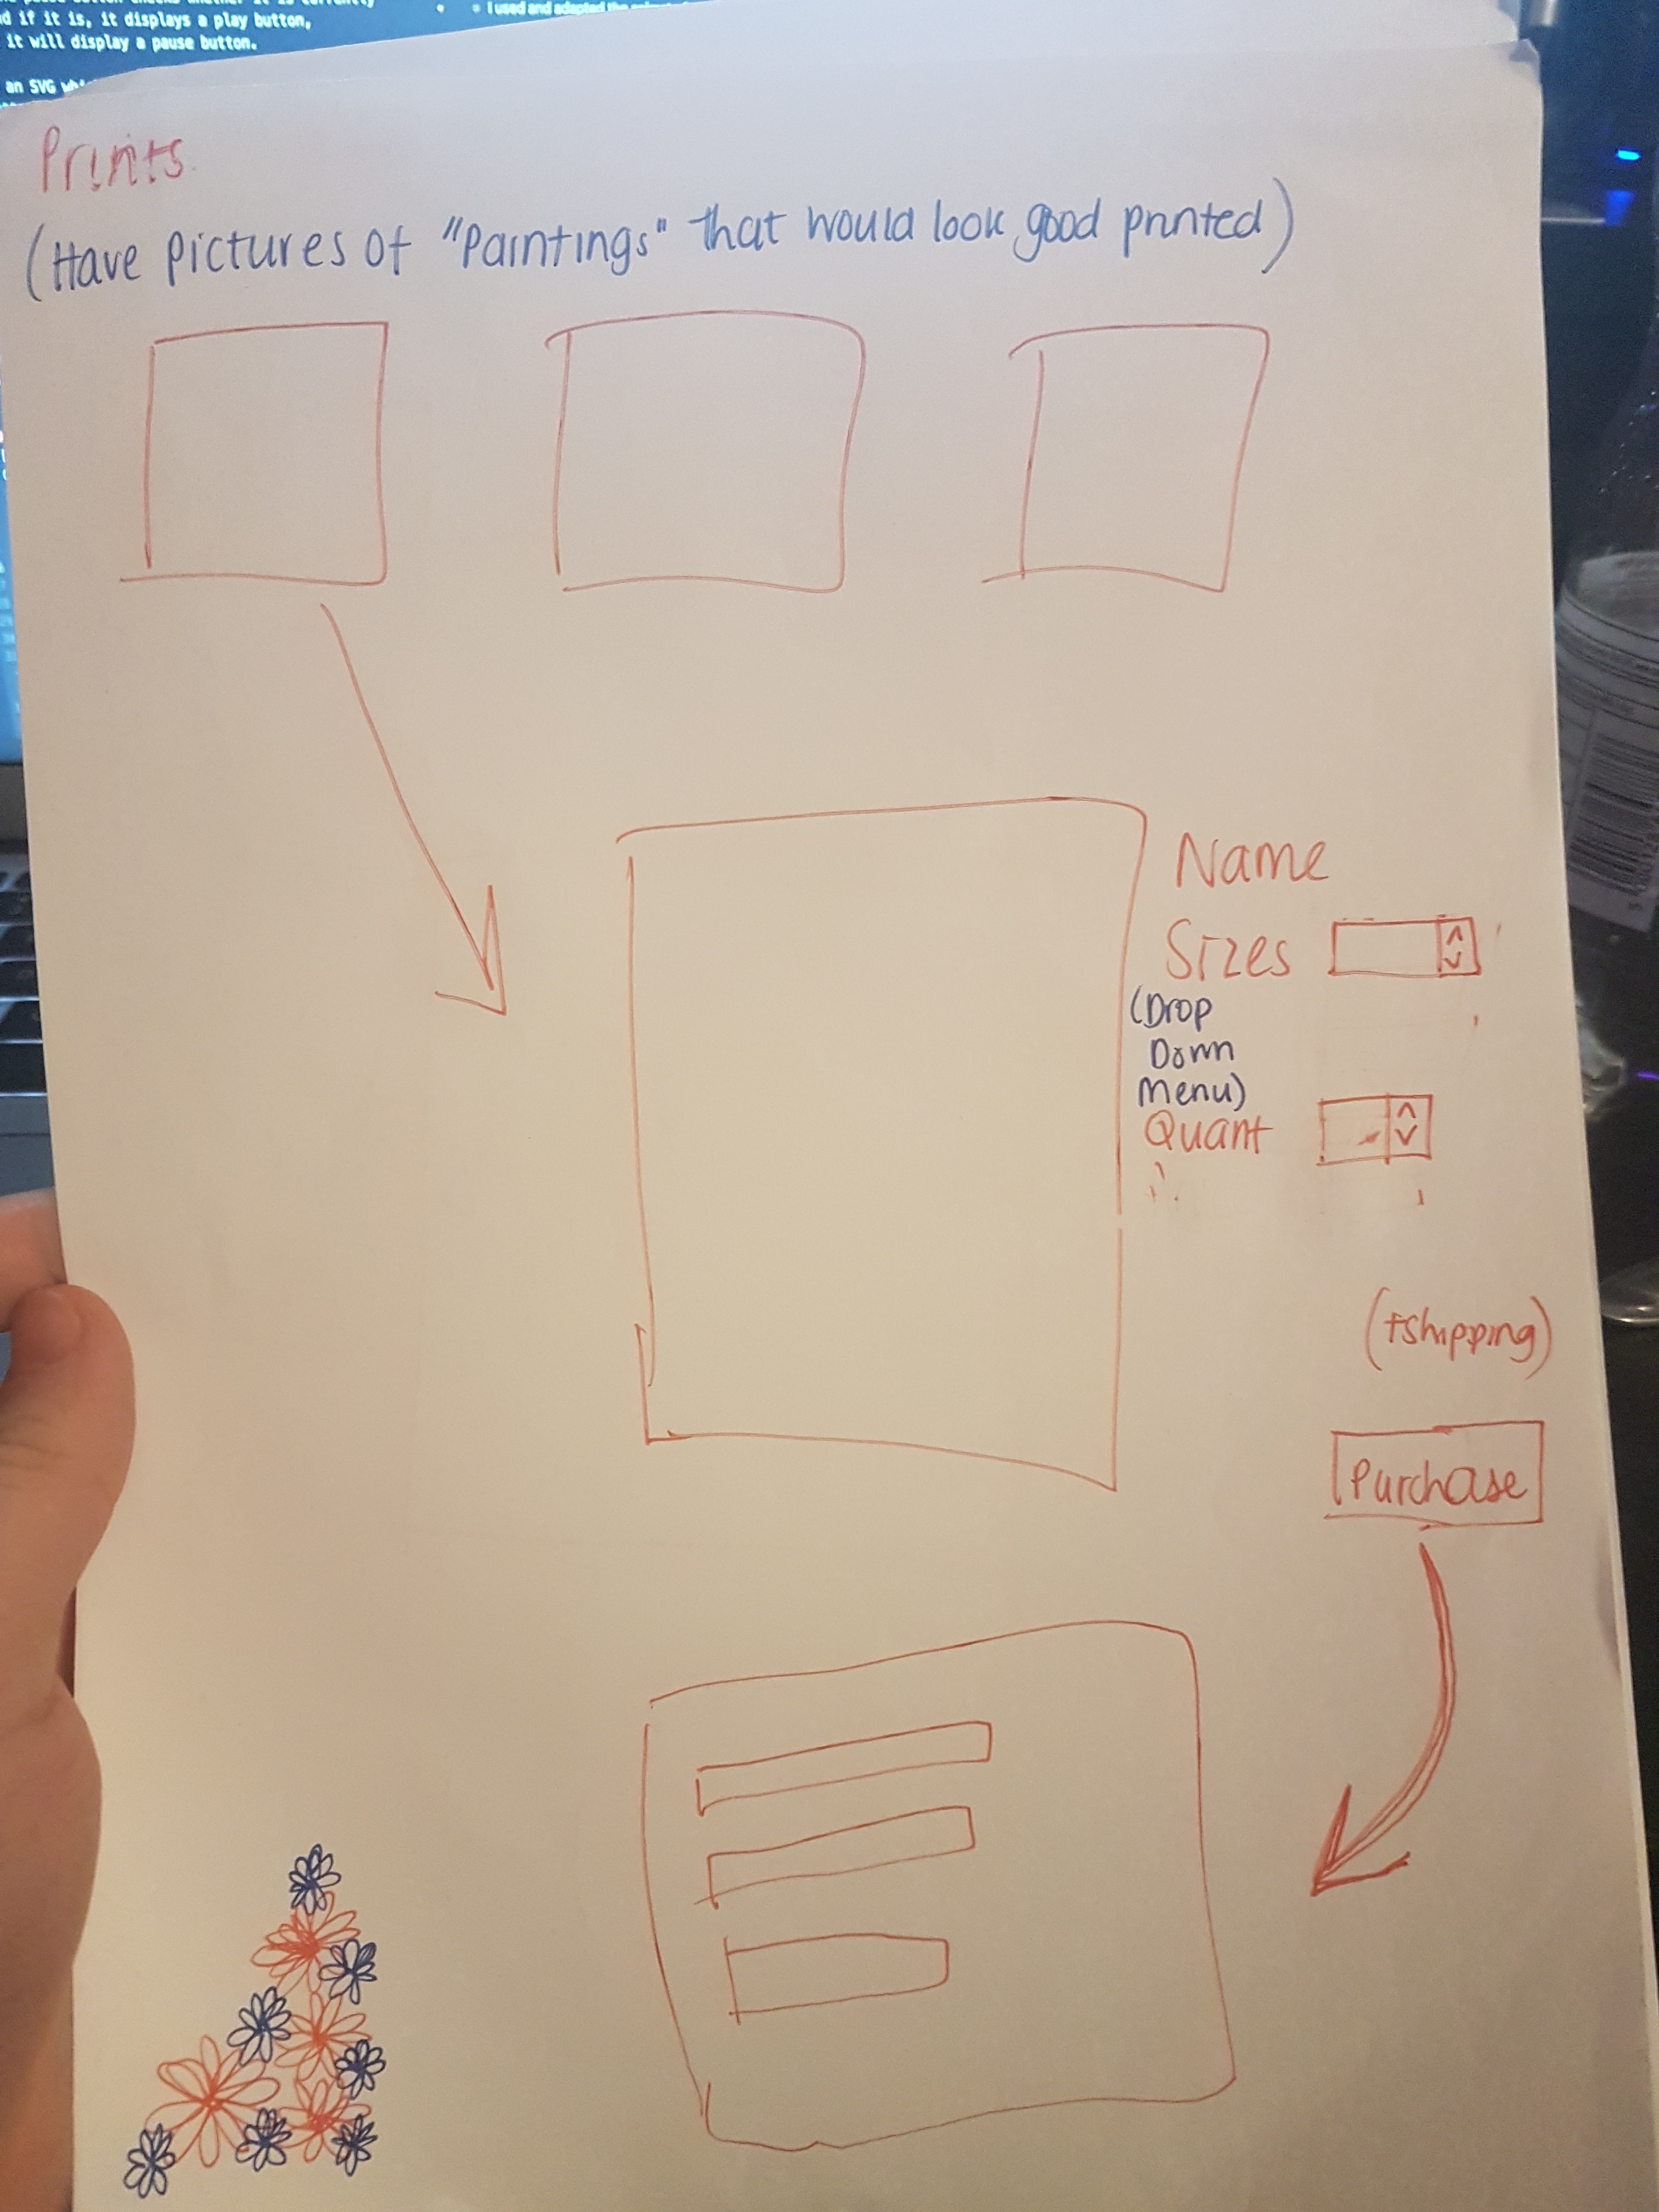 d if it is, it displays a play button,
it will display a pause button.
an SVG
I used and adapted the
Prints
(Have pictures of "Paintings" that would look good printed)
Name
Sizes
(Drop
Down
Menu)
Quant
(+shipping)
Purchase